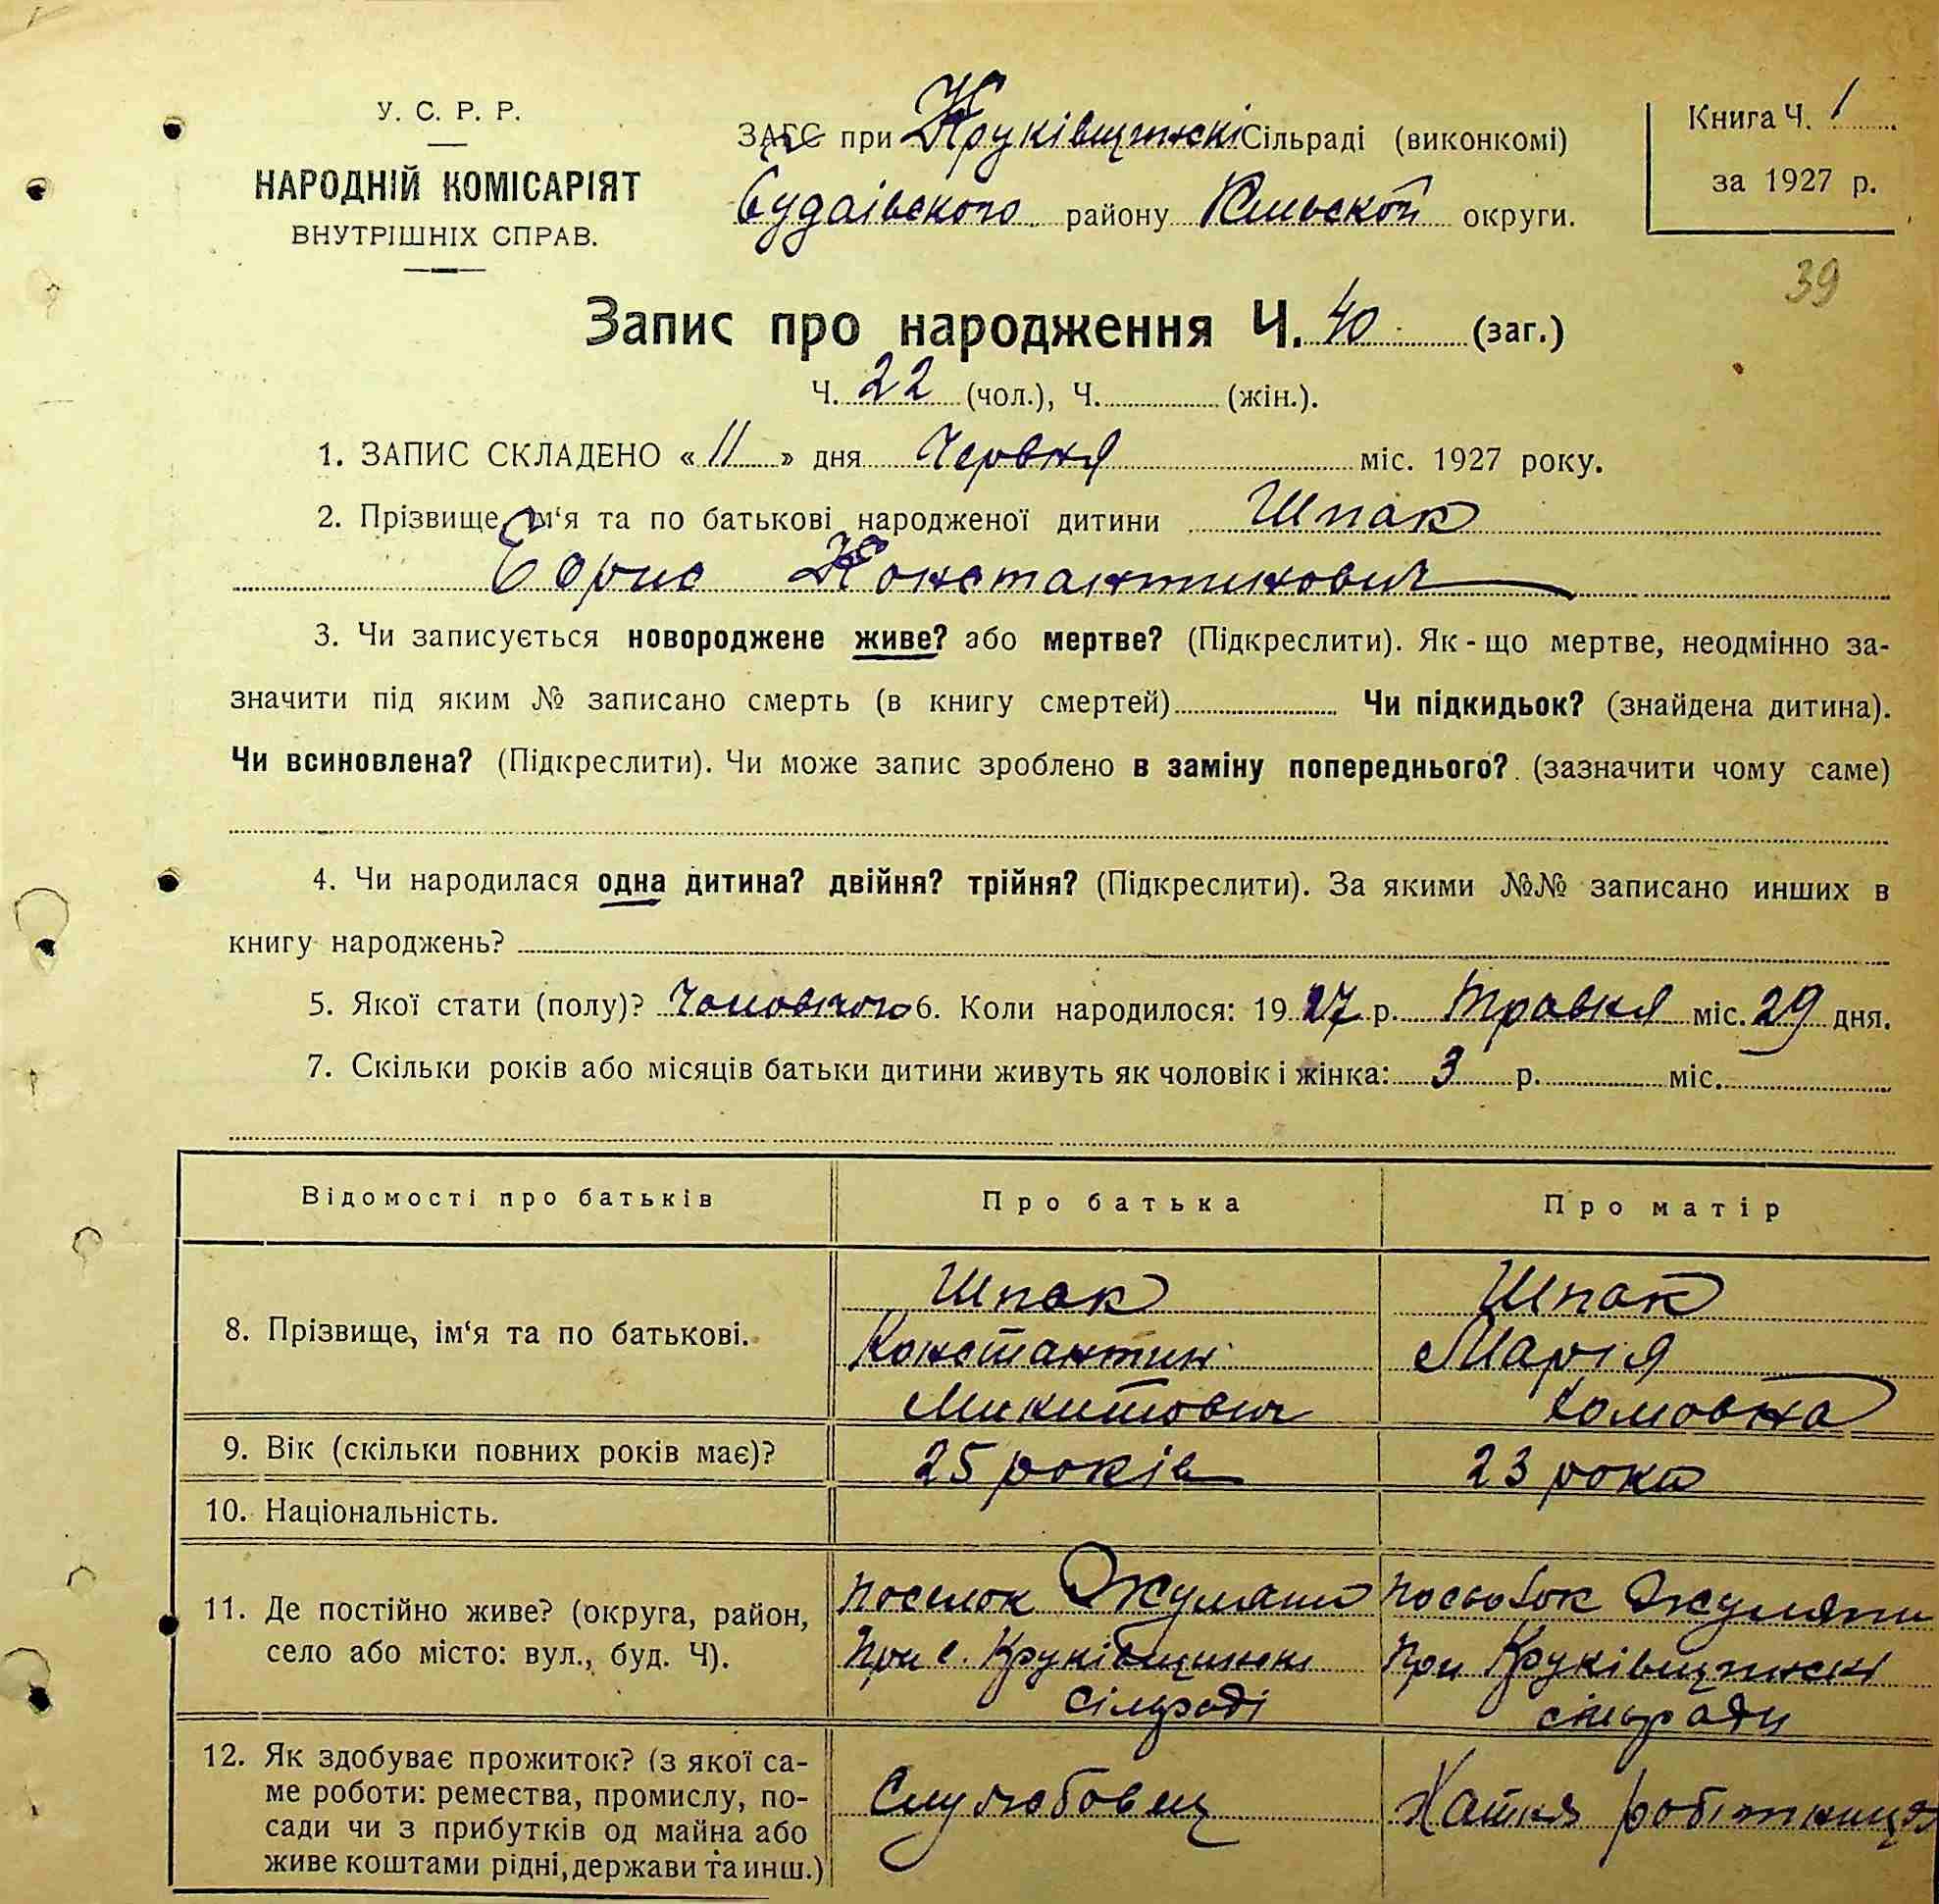 У. С. Р. Р.
НАРОДНІЙ КОМІСАРІЯТ
ВНУТРІШНІХ СПРАВ.
ЗАГС при Круківщинскі Сільраді (виконкомі)
Будаівского району Київской округи.
Книга Ч. 1
за 1927 р.
39
Запис про народження Ч. 40 (заг.)
Ч. 22 (чол.), Ч. (жін.).
1. ЗАПИС СКЛАДЕНО « 11 » дня Червня міс. 1927 року.
2. Прізвище, ім‘я та по батькові народженої дитини Шпак
Борис Константинович
3. Чи записується новороджене живе? або мертве? (Підкреслити). Як - що мертве, неодмінно за-
значити під яким № записано смерть (в книгу смертей) Чи підкидьок? (знайдена дитина).
Чи всиновлена? (Підкреслити). Чи може запис зроблено в заміну попереднього? (зазначити чому саме)
4. Чи народилася одна дитина? двійня? трійня? (Підкреслити). За якими №№ записано инших в
книгу народжень?
5. Якої стати (полу)? Чоловічого 6. Коли народилося: 1927 р. Травня міс. 29 дня.
7. Скільки років або місяців батьки дитини живуть як чоловік і жінка: 3 р. міс.
Відомості про батьків Про батька Про матір
8. Прізвище, ім‘я та по батькові.
Шпак
Константин
Микитович
Шпак
Марія
Хомовна
9. Вік (скільки повних років має)? 25 років 23 роки
10. Національність.
11. Де постійно живе? (округа, район,
село або місто: вул., буд. Ч).
поселок Жуляни
при с. Круківщинскі
сілраді
посьолок Жуляни
при Круківщинскі
сільради
12. Як здобуває прожиток? (з якої са-
ме роботи: ремества, промислу, по-
сади чи з прибутків од майна або
живе коштами рідні, держави та инш.)
Службовец
Хатня робітниця